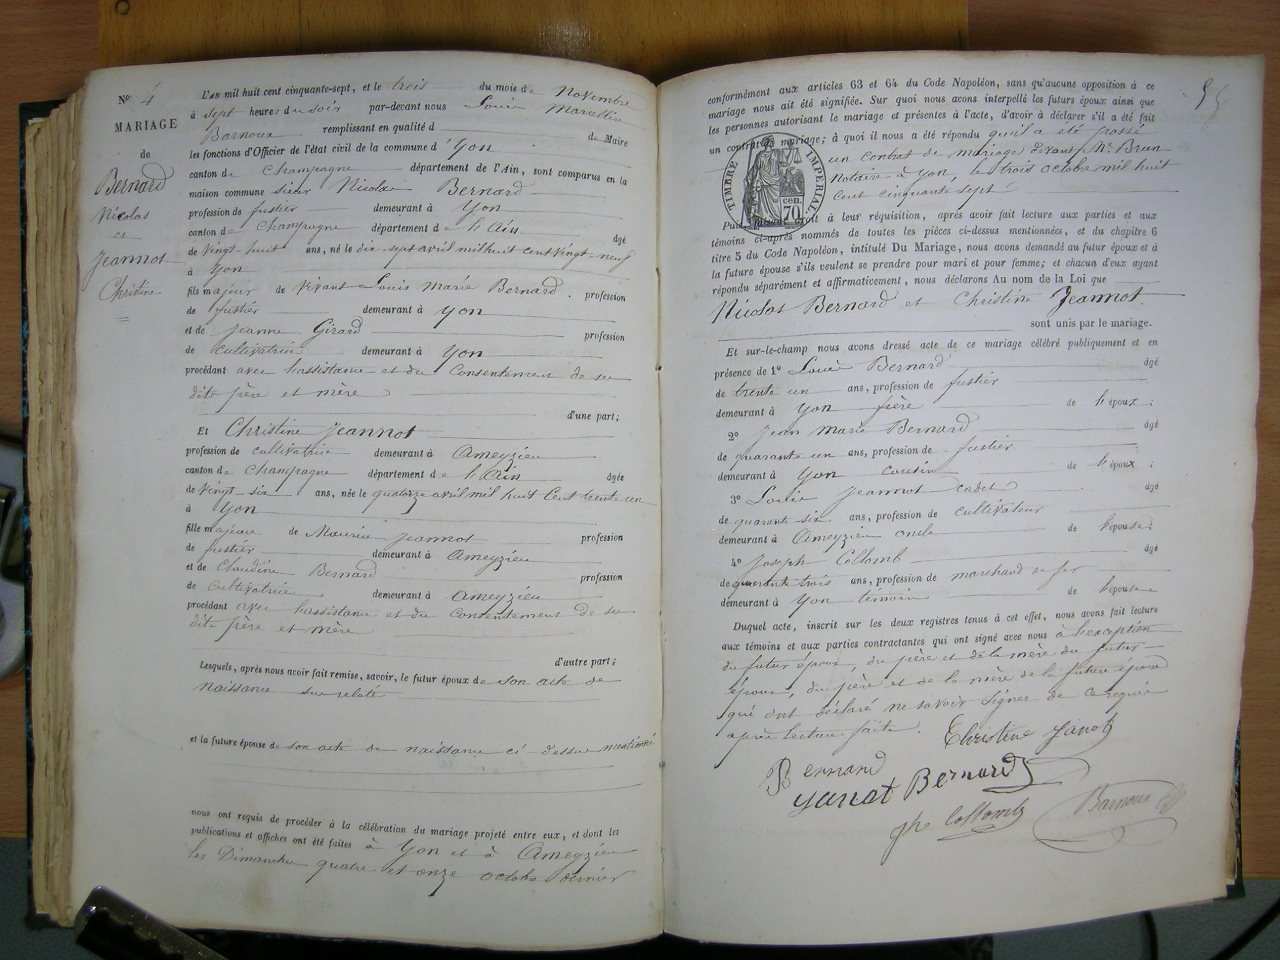 N° 4
MARIAGE
de
Bernard
Nicolas
et
Jeannot
Christine
L'an mil huit cent cinquante-sept, et le trois du mois de Novembre
à sept heures du soir par-devant nous Louis Marcellin
Barnoux remplissant en qualité d de Maire
les fonctions d'Officier de l'état civil de la commune d'Yon
canton de Champagne département de l'Ain, sont comparus en la
maison commune sieur Nicolas Bernard
profession de fustier demeurant à Yon
canton de Champagne département de l'Ain âgé
de vingt huit ans, né le dix-sept avril mil huit cent vingt-neuf
à Yon
fils majeur de vivant Louis Marie Bernard profession
de fustier demeurant à Yon
et de Jeanne Girard profession
de cultivatrice demeurant à Yon
procédant avec l'assistance et du Consentement de ses
dits père et mère
d'une part;
Et Christine Jeannot
profession de cultivatrice demeurant à Ameyzieu
canton de Champagne département de l'Ain âgée
de vingt-six ans, née le quatorze avril mil huit Cent trente un
à Yon
fille majeure de Maurice Jeannot profession
de fustier demeurant à Ameyzieu
et de Claudine Bernard profession
de cultivatrice demeurant à Ameyzieu
procédant avec l'assistance et du Consentement de ses
dits père et mère
d'autre part;
Lesquels, après nous avoir fait remise, savoir, le futur époux de son acte de
naissance sus relaté
et la future épouse de son acte de naissance ci dessus mentionné
nous ont requis de procéder à la célébration du mariage projeté entre eux, et dont les
publications et affiches ont été faites à Yon et à Ameyzieu
les Dimanches quatre et onze octobre dernier
conformément aux articles 63 et 64 du Code Napoléon, sans qu'aucune opposition à ce
mariage nous ait été signifiée. Sur quoi nous avons interpellé les futurs époux ainsi que
les personnes autorisant le mariage et présentes à l'acte, d'avoir à déclarer s'il a été fait
un contrat de mariage; à quoi il nous a été répondu qu'il a été passé
un contrat de mariage devant Me Brun
Notaire à Yon, le trois octobre mil huit
Cent cinquante sept
TIMBRE IMPÉRIAL
70 cen.
Puis, faisant droit à leur réquisition, après avoir fait lecture aux parties et aux
témoins ci-après nommés de toutes les pièces ci-dessus mentionnées, et du chapitre 6
titre 5 du Code Napoléon, intitulé Du Mariage, nous avons demandé au futur époux et à
la future épouse s'ils veulent se prendre pour mari et pour femme; et chacun d'eux ayant
répondu séparément et affirmativement, nous déclarons Au nom de la Loi que
Nicolas Bernard et Christine Jeannot
sont unis par le mariage.
Et sur-le-champ nous avons dressé acte de ce mariage célébré publiquement et en
présence de 1° Louis Bernard âgé
de trente un ans, profession de fustier
demeurant à Yon frère de l'époux;
2° Jean Marie Bernard âgé
de quarante un ans, profession de fustier
demeurant à Yon cousin de l'époux;
3° Louis Jeannot cadet âgé
de quarante six ans, profession de cultivateur
demeurant à Ameyzieu oncle de l'épouse;
4° Joseph Collomb âgé
de quarante trois ans, profession de marchand de fer
demeurant à Yon témoin de l'épouse
Duquel acte, inscrit sur les deux registres tenus à cet effet, nous avons fait lecture
aux témoins et aux parties contractantes qui ont signé avec nous à l'exception
du futur époux, du père et de la mère du futur
époux, du père et de la mère de la future épouse
qui ont déclaré ne savoir signer de ce requis
après lecture faite.
Christine Janot
Bernard
Janot Bernard
jph Collomb
Barnoux